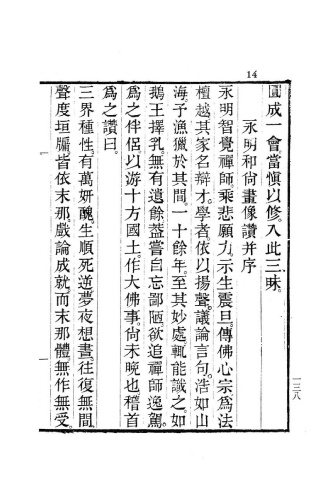 14
圓成一會當愼以修。入此三昧。
永明和尙畫像讚并序
永明智覺禪師。乘悲願力。示生震旦。傳佛心宗。爲法
檀越。其家名辯才。學者依以揚聲。議論言句。浩如山
海。予漁獵於其間。一十餘年。至其妙處。輒能識之。如
鵝王擇乳。無有遺餘。蓋嘗自忘鄙陋。欲追禪師逸駕。
爲之伴侶。以游十方國土。作大佛事。尙未晚也。稽首
爲之讚曰。
三界種性。有萬妍醜。生順死逆。夢夜想晝。往復無間。
聲度垣牖。皆依末那。戲論成就。而末那體。無作無受。
一三八